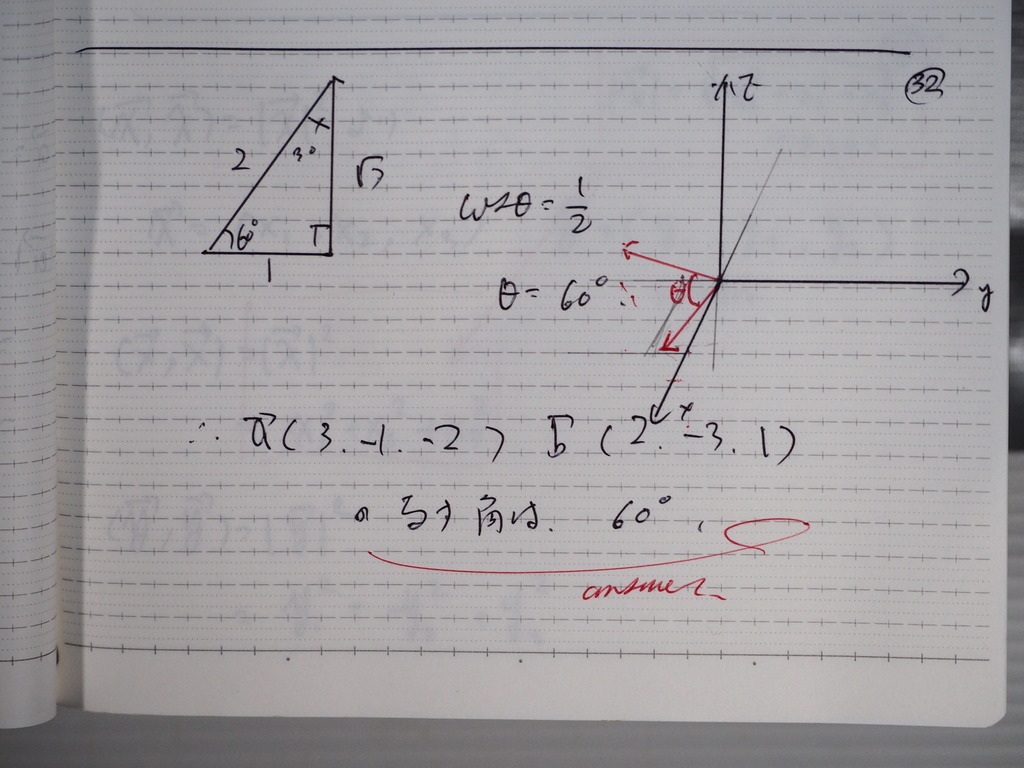 32
z
2
30°
√3
60°
1
cosθ = 1/2
θ = 60° ∵
θ
y
x
∴ a⃗(3. -1. -2) b⃗(2. -3. 1)
のなす角は. 60°.
answer